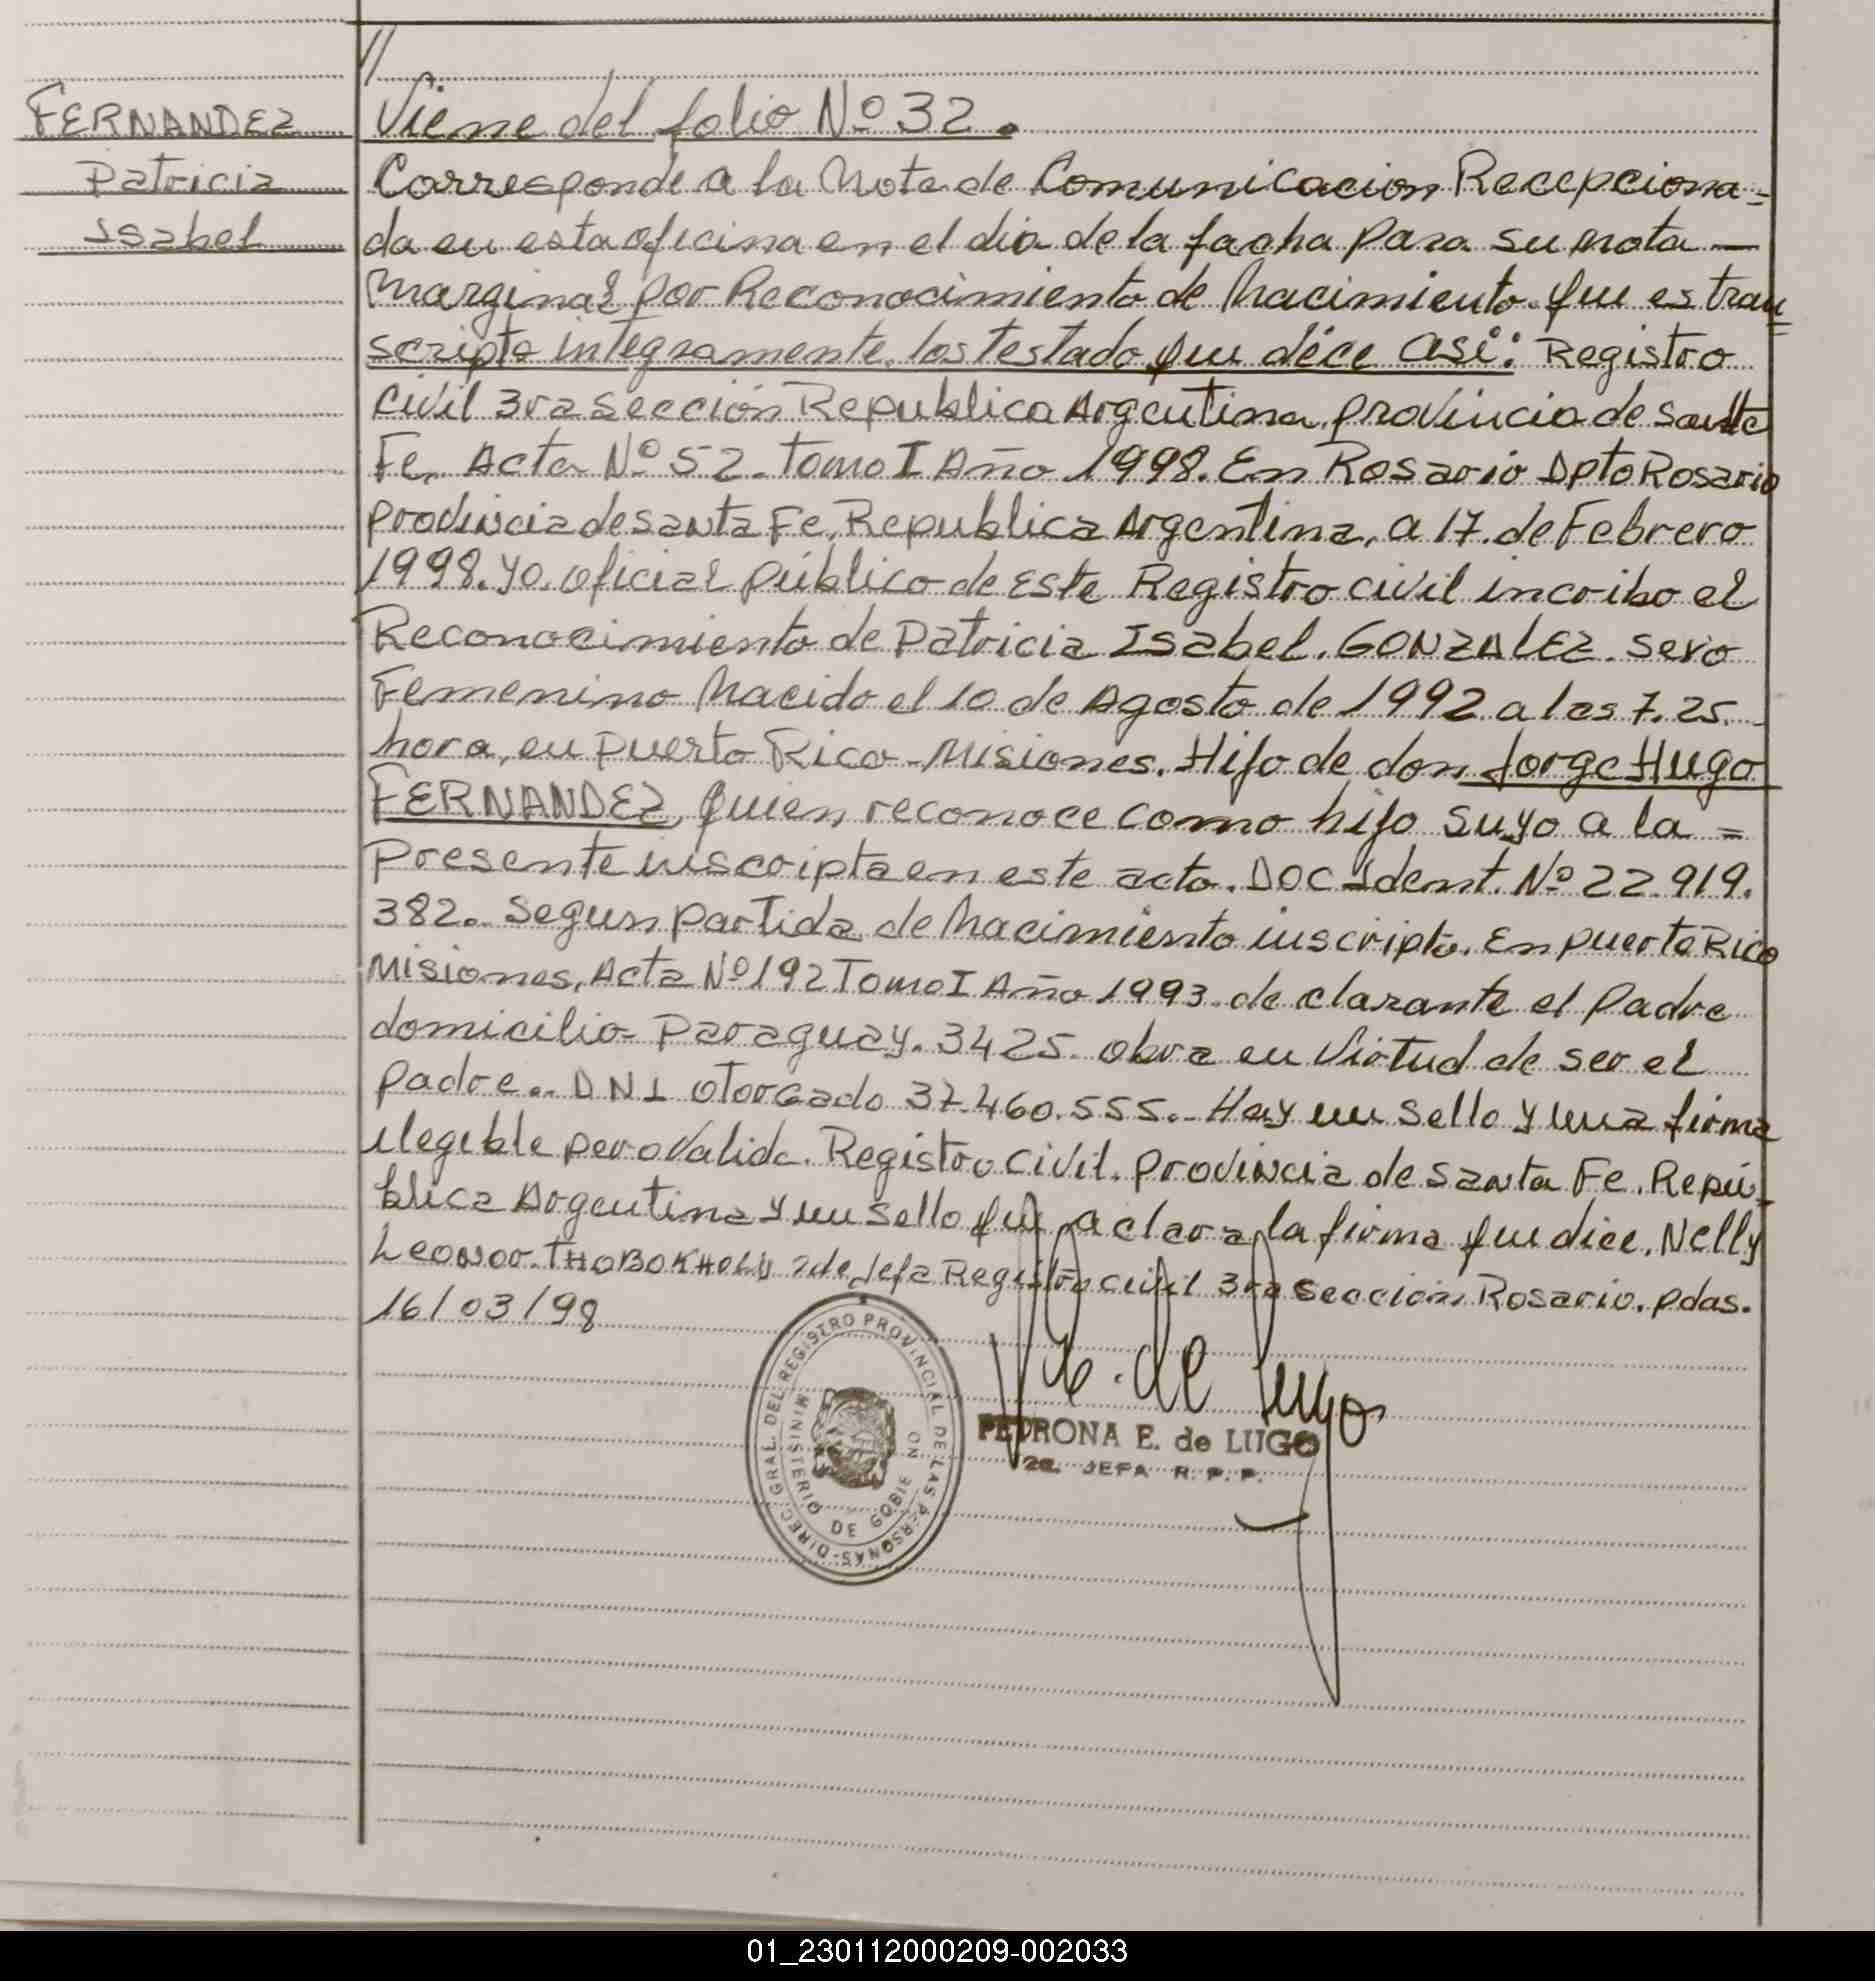 //
FERNANDEZ
Patricia
Isabel
Viene del folio Nº 32.
Corresponde a la Nota de Comunicacion Recepciona=
da en esta oficina en el dia de la facha para su nota —
Marginal por Reconocimiento de Nacimiento. que es tran=
scripto integramente. los testado que dice asi: Registro
Civil 3ra Sección Republica Argentina, provincia de Santa
Fe, Acta Nº 52. Tomo I Año 1998. En Rosario Dpto Rosario
provincia de Santa Fe, Republica Argentina, a 17. de Febrero
1998. yo. oficial público de Este Registro civil incribo el
Reconocimiento de Patricia Isabel. GONZALEZ. sexo
Femenino Nacido el 10 de Agosto de 1992 a las 7.25.
hora, en Puerto Rico - Misiones. Hijo de don Jorge Hugo
FERNANDEZ, quien, reconoce como hijo suyo a la =
Presente inscripta en este acto. DOC Ident. Nº 22.919.
382. Segun partida de Nacimiento inscripto. En puerto Rico
Misiones, Acta Nº 192 Tomo I Año 1993. de clarante el Padre
domicilio - Paraguay. 3425. obra en Virtud de ser el
padre.. DNI otorgado 37.460.555.- Hay un sello y una firma
ilegible pero Valida. Registro Civil. provincia de Santa Fe. Repú-
blica Argentina y un sello que aclara la firma que dice, Nelly
Leonor. 2de Jefa Registro civil 3ra Sección Rosario. pdas.
16/03/98
DIREC. GRAL. DEL REGISTRO PROVINCIAL DE LAS PERSONAS-
MINISTERIO DE GOBIERNO
de Lugo
PETRONA E. de LUGO
2a. JEFA R. P. P.
01_230112000209-002033